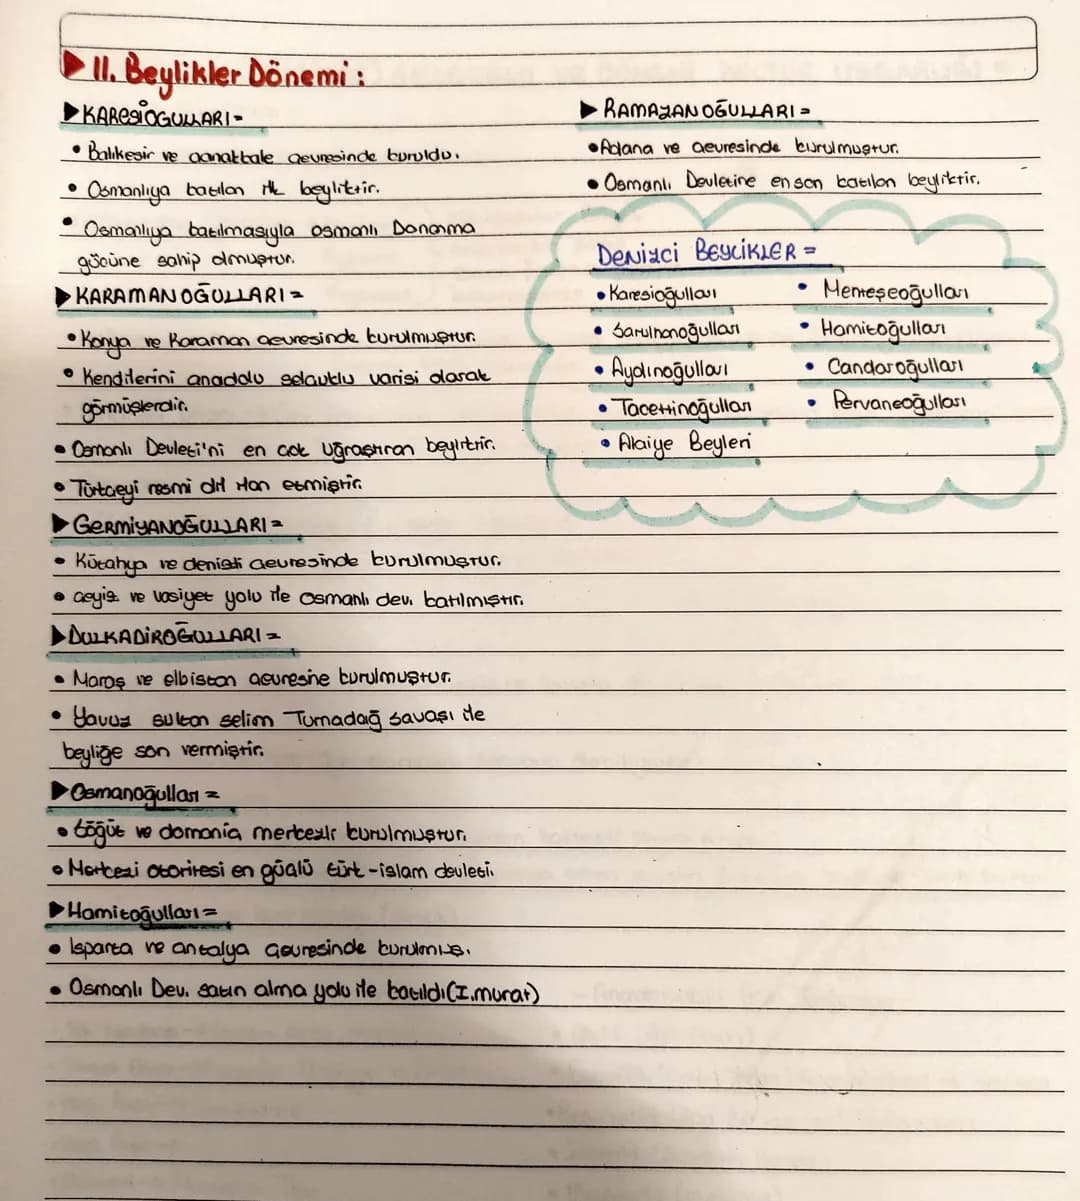 II. Beylikler Dönemi :
KARESİOĞULLARI =
• Balıkesir ve çanakkale çevresinde kuruldu.
• Osmanlıya katılan ilk beyliktir.
• Osmanlıya katılmasıyla osmanlı Donanma
gücüne sahip olmuştur.
KARAMANOĞULLARI =
• Konya ve Karaman çevresinde kurulmuştur.
• Kendilerini anadolu selçuklu varisi olarak
görmüşlerdir.
• Osmanlı Devleti'ni en çok uğraştıran beyliktir.
• Türkçeyi resmi dil ilan etmiştir.
GERMİYANOĞULLARI =
• Kütahya ve denizli çevresinde kurulmuştur.
• çeyiz ve vasiyet yolu ile osmanlı dev. katılmıştır.
DULKADİROĞULLARI =
• Maraş ve elbistan çevresine kurulmuştur.
• Yavuz sultan selim Turnadağ savaşı ile
beyliğe son vermiştir.
Osmanoğulları =
• söğüt ve domaniç merkezlr kurulmuştur.
• Merkezi otoritesi en güçlü türk-islam devleti.
Hamitoğulları =
• Isparta ve antalya çevresinde kurulmuş.
• Osmanlı Dev. satın alma yolu ile katıldı (I.murat)
RAMAZANOĞULLARI =
• Adana ve çevresinde kurulmuştur.
• Osmanlı Devletine en son katılan beyliktir.
DENİZCİ BEYLİKLER =
• Karesioğulları
• Saruhanoğulları
• Aydınoğulları
• Tacettinoğulları
• Alaiye Beyleri
• Menteşeoğulları
• Hamitoğulları
• Candaroğulları
• Pervaneoğulları